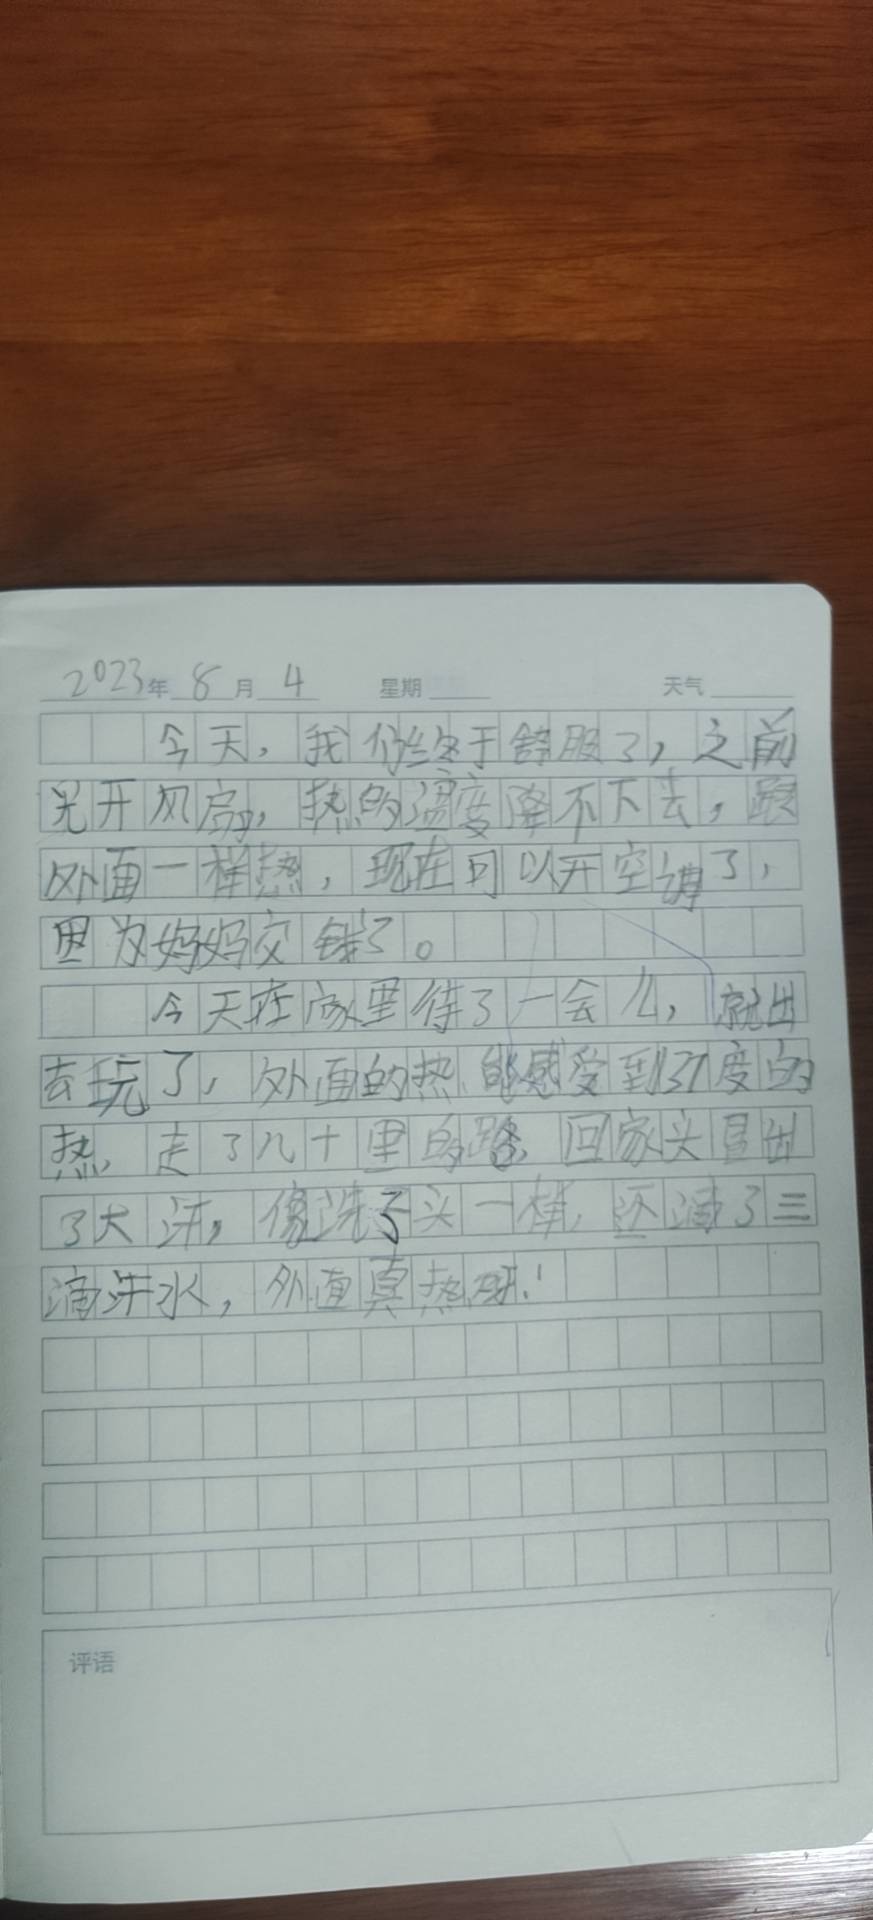 2023年8月4 星期 天气
今天，我们终于舒服了，之前
光开风扇，热的温度降不下去，跟
外面一样热，现在可以开空调了，
因为妈妈交钱了。
今天在家里待了一会儿，就出
去玩了，外面的热，能感受到37度的
热，走了几十里的路，回家头冒出
了大汗，像洗了头一样，还滴了三
滴汗水，外面真热呀！
评语